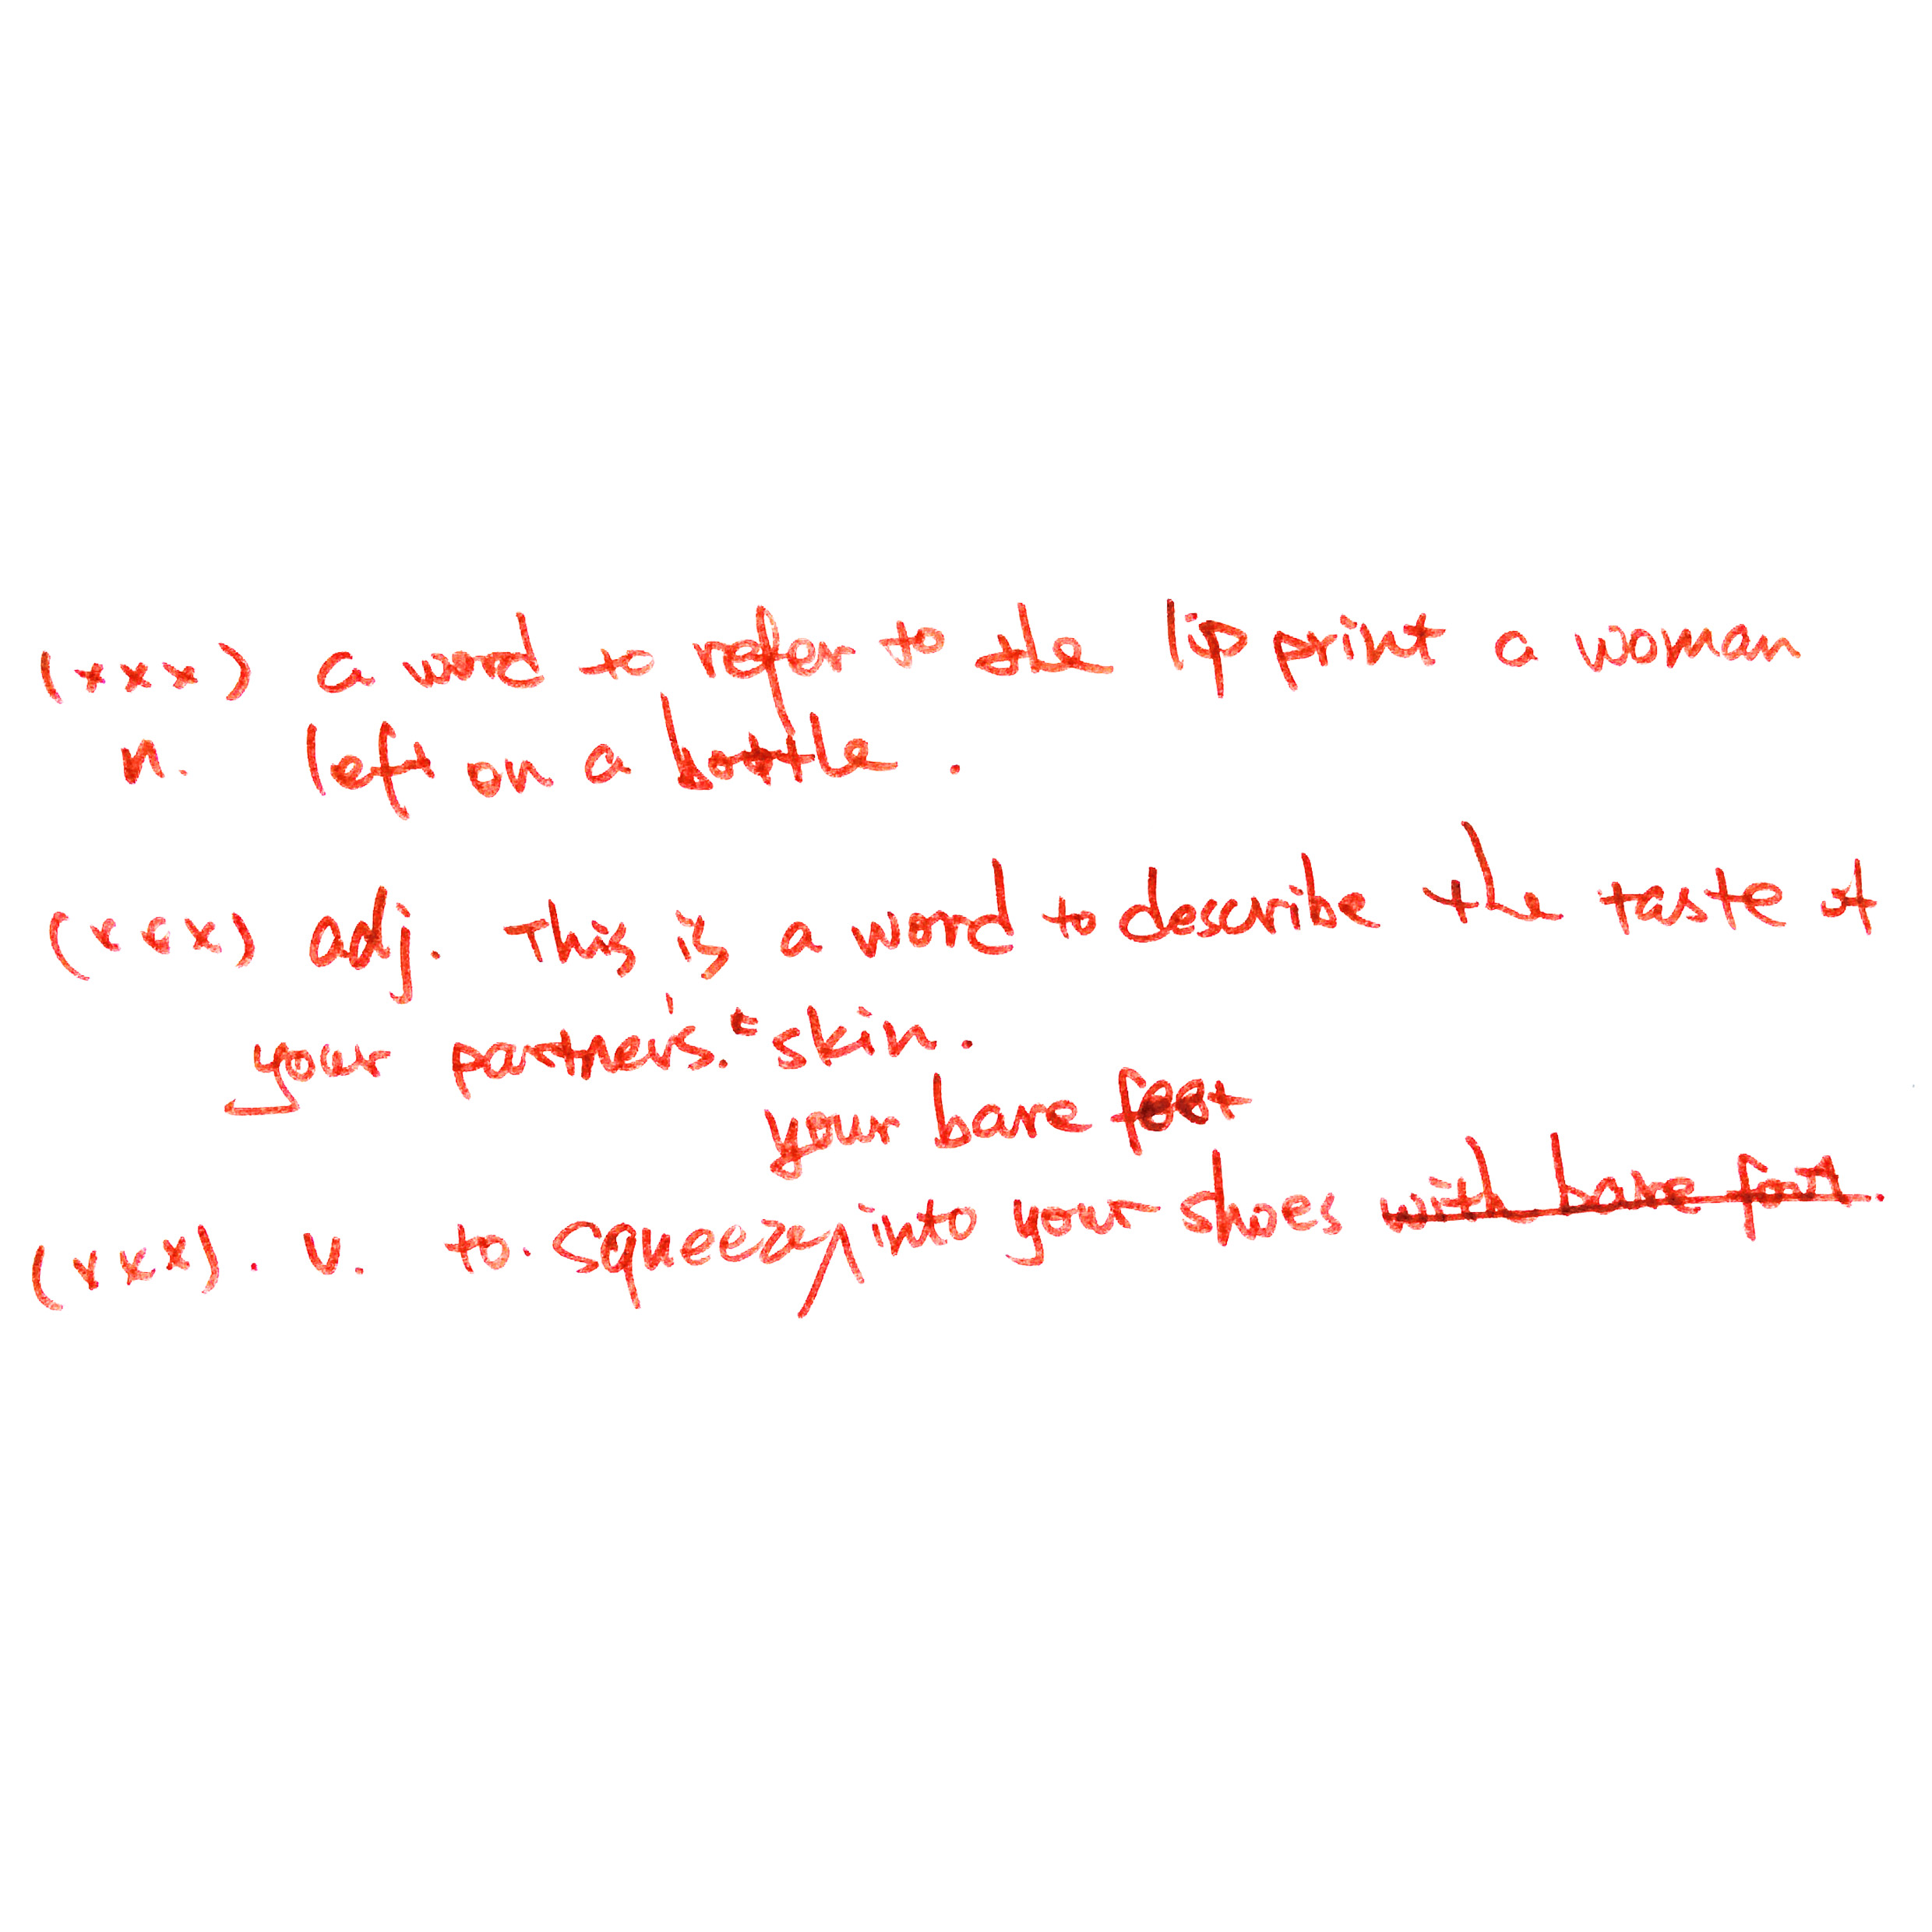 (xxx) a word to refer to the lip print a woman
n. left on a bottle.
(xxx) adj. This is a word to describe the taste of
your partner's. skin.
your bare foot
(xxx). v. to. squeeze into your shoes with bare foot.